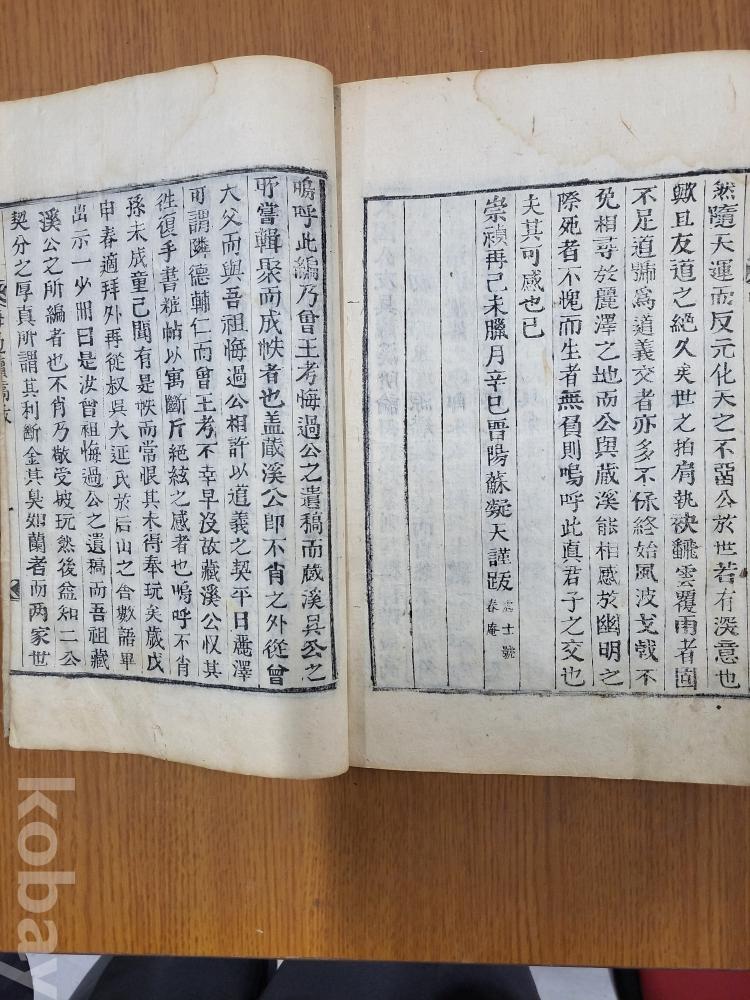 然隨天運而反元化天之不啚公於世若有深意也
歟且友道之絶久矣世之拍肩執袂飜雲覆雨者固
不足道號爲道義交者亦多不保終始風波戈戟不
免相尋於麗澤之地而公與藏溪能相感於幽明之
際死者不愧而生者無負則嗚呼此真君子之交也
夫其可感也已
崇禎再己未臘月辛巳晋陽蘇凝天謹跋 士號春庵
嗚呼此編乃曾王考悔過公之遺稿而藏溪吳公之
所嘗輯聚而成帙者也盖藏溪公即不肖之外從曾
大父而與吾祖悔過公相許以道義之契平日麗澤
可謂隣德輔仁而曾王考不幸早沒故藏溪公収其
徃復手書粧帖以寓斷斤絶絃之感者也嗚呼不肖
孫未成童已聞有是帙而常恨其未得奉玩矣歲戊
申春適拜外再從叔吳大 氏於后山之舍數語畢
出示一少冊曰是汝曾祖悔過公之遺稿而吾祖藏
溪公之所編者也不肖乃敬受披玩然後益知二公
契分之厚真所謂其利斷金其臭如蘭者而两家世
kobay